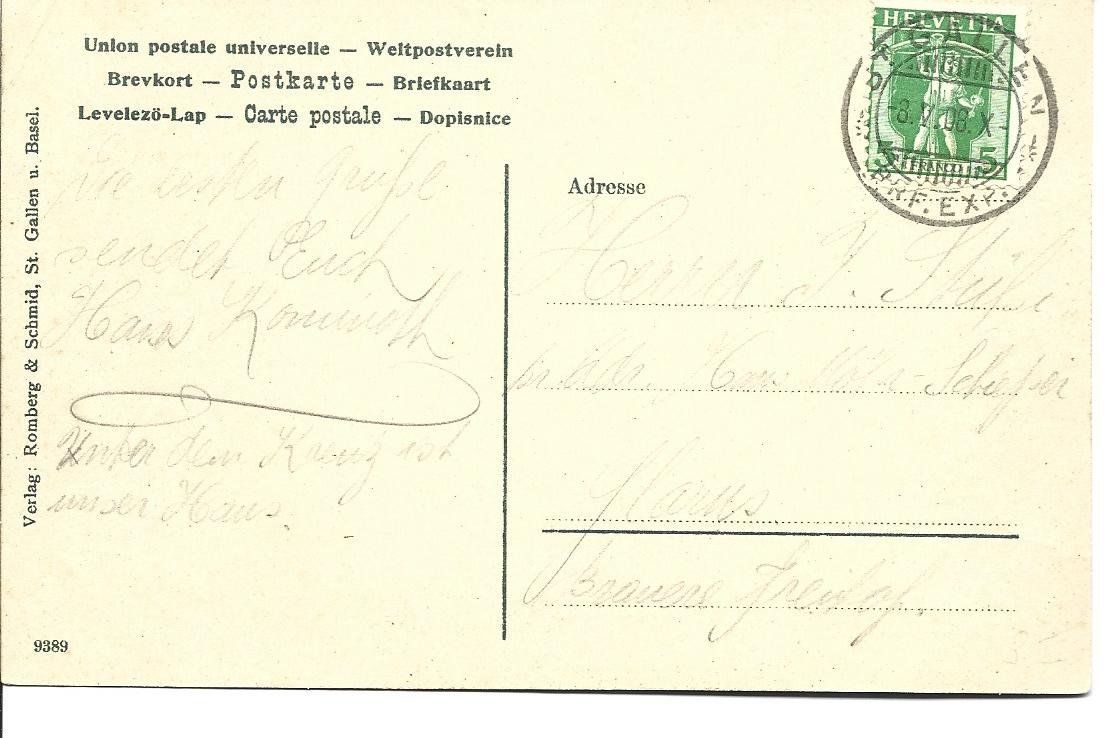 Union postale universelle — Weltpostverein
Brevkort — Postkarte — Briefkaart
Levelezö-Lap — Carte postale — Dopisnice
Verlag: Romberg & Schmid, St. Gallen u. Basel.
Die besten Grüße
sendet Euch
Hans
Unter dem Kreuz ist
unser Haus.
9389
HELVETIA
5 FRANCO 5
ST. GALLEN
BRF. EXP.
Adresse
Herrn J.
Glarus